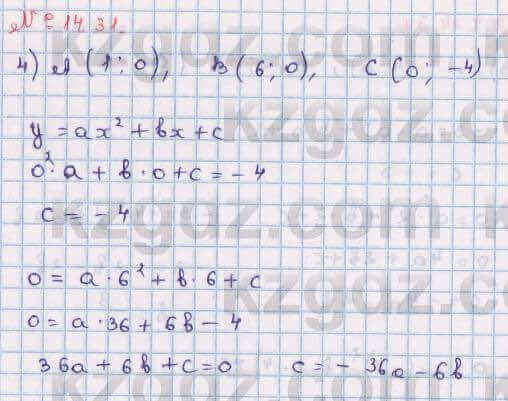 № 14.31.
4) A (1; 0), B (6; 0), C (0; -4)
y = ax² + bx + c
0²·a + b·0 + c = -4
c = -4
0 = a·6² + b·6 + c
0 = a·36 + 6b - 4
36a + 6b + c = 0 c = - 36a - 6b
kzgoz.com
kzgoz.com
kzgoz.com
kzgoz.com